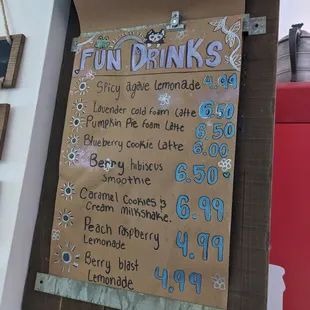 FUN DRINKS
Spicy agave Lemonade 4.99
Lavender cold foam Latte 6.50
Pumpkin Pie foam Latte 6.50
Blueberry cookie Latte 6.00
Berry hibiscus 6.50
Smoothie
Caramel Cookies &
Cream Milkshake. 6.99
Peach raspberry
Lemonade 4.99
Berry blast
Lemonade 4.99